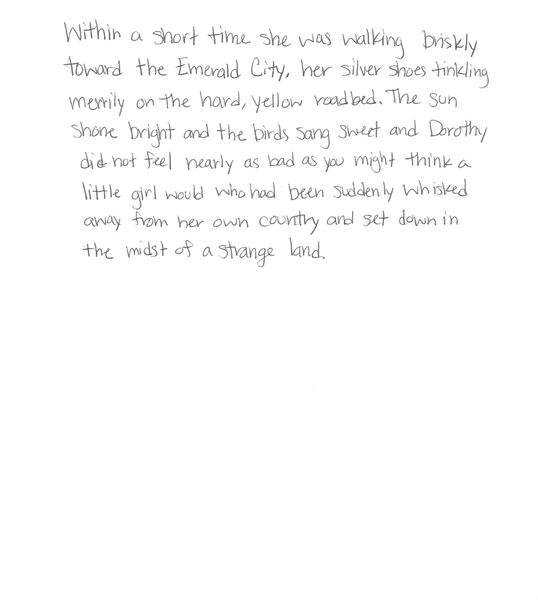 Within a short time she was walking briskly
toward the Emerald City, her silver shoes tinkling
merrily on the hard, yellow roadbed. The sun
shone bright and the birds sang sweet and Dorothy
did not feel nearly as bad as you might think a
little girl would who had been suddenly whisked
away from her own country and set down in
the midst of a strange land.